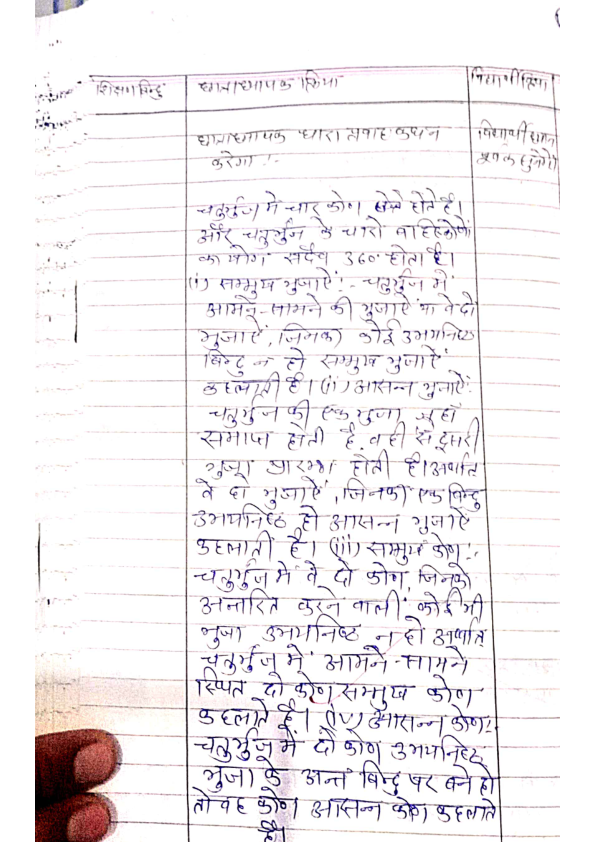 शिक्षण बिन्दु छात्राध्यापक क्रिया विद्यार्थी क्रिया
छात्राध्यापक द्वारा कथन विद्यार्थी
करेगा :- सुनेंगे
चतुर्भुज में चार कोण होते है।
और चतुर्भुज के चारो बाह्यकोणों
का योग सदैव 360° होता है।
(i) सम्मुख भुजाऐं :- चतुर्भुज में
आमने-सामने की भुजाऐं या वे दो
भुजाऐं, जिनका कोई उभयनिष्ठ
बिन्दु न हो सम्मुख भुजाऐं
कहलाती है। (ii) आसन्न भुजाऐं :-
चतुर्भुज की एक भुजा जहाँ
समाप्त होती है, वही से दूसरी
भुजा प्रारम्भ होती है। अर्थात
वे दो भुजाऐं, जिनका एक बिन्दु
उभयनिष्ठ हो आसन्न भुजाऐं
कहलाती है। (iii) सम्मुख कोण :-
चतुर्भुज में वे दो कोण जिनको
अन्तरित करने वाली कोई भी
भुजा उभयनिष्ट न हो अर्थात्
चतुर्भुज में आमने-सामने
स्थित दो कोण सम्मुख कोण
कहलाते है। (iv) आसन्न कोण :-
चतुर्भुज में दो कोण उभयनिष्ट
भुजा के अन्त बिन्दु पर बने हो
तो वह कोण आसन्न कोण कहलाते
है।